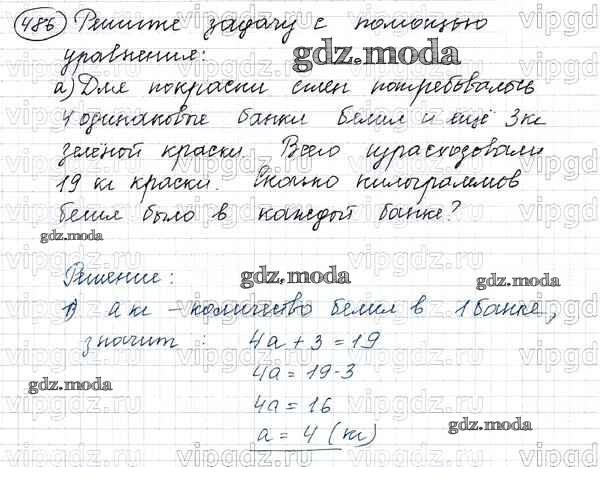 486 Решите задачу с помощью
уравнения:
gdz.moda
а) Для покраски стен потребовалось
4 одинаковые банки белил и ещё 3 кг
зелёной краски. Всего израсходовали
19 кг краски. Сколько килограммов
белил было в каждой банке?
gdz.moda
Решение:
gdz.moda
gdz.moda
1) а кг – количество белил в 1 банке,
значит: 4а + 3 = 19
4а = 19 - 3
gdz.moda
4а = 16
gdz.moda
а = 4 (кг)